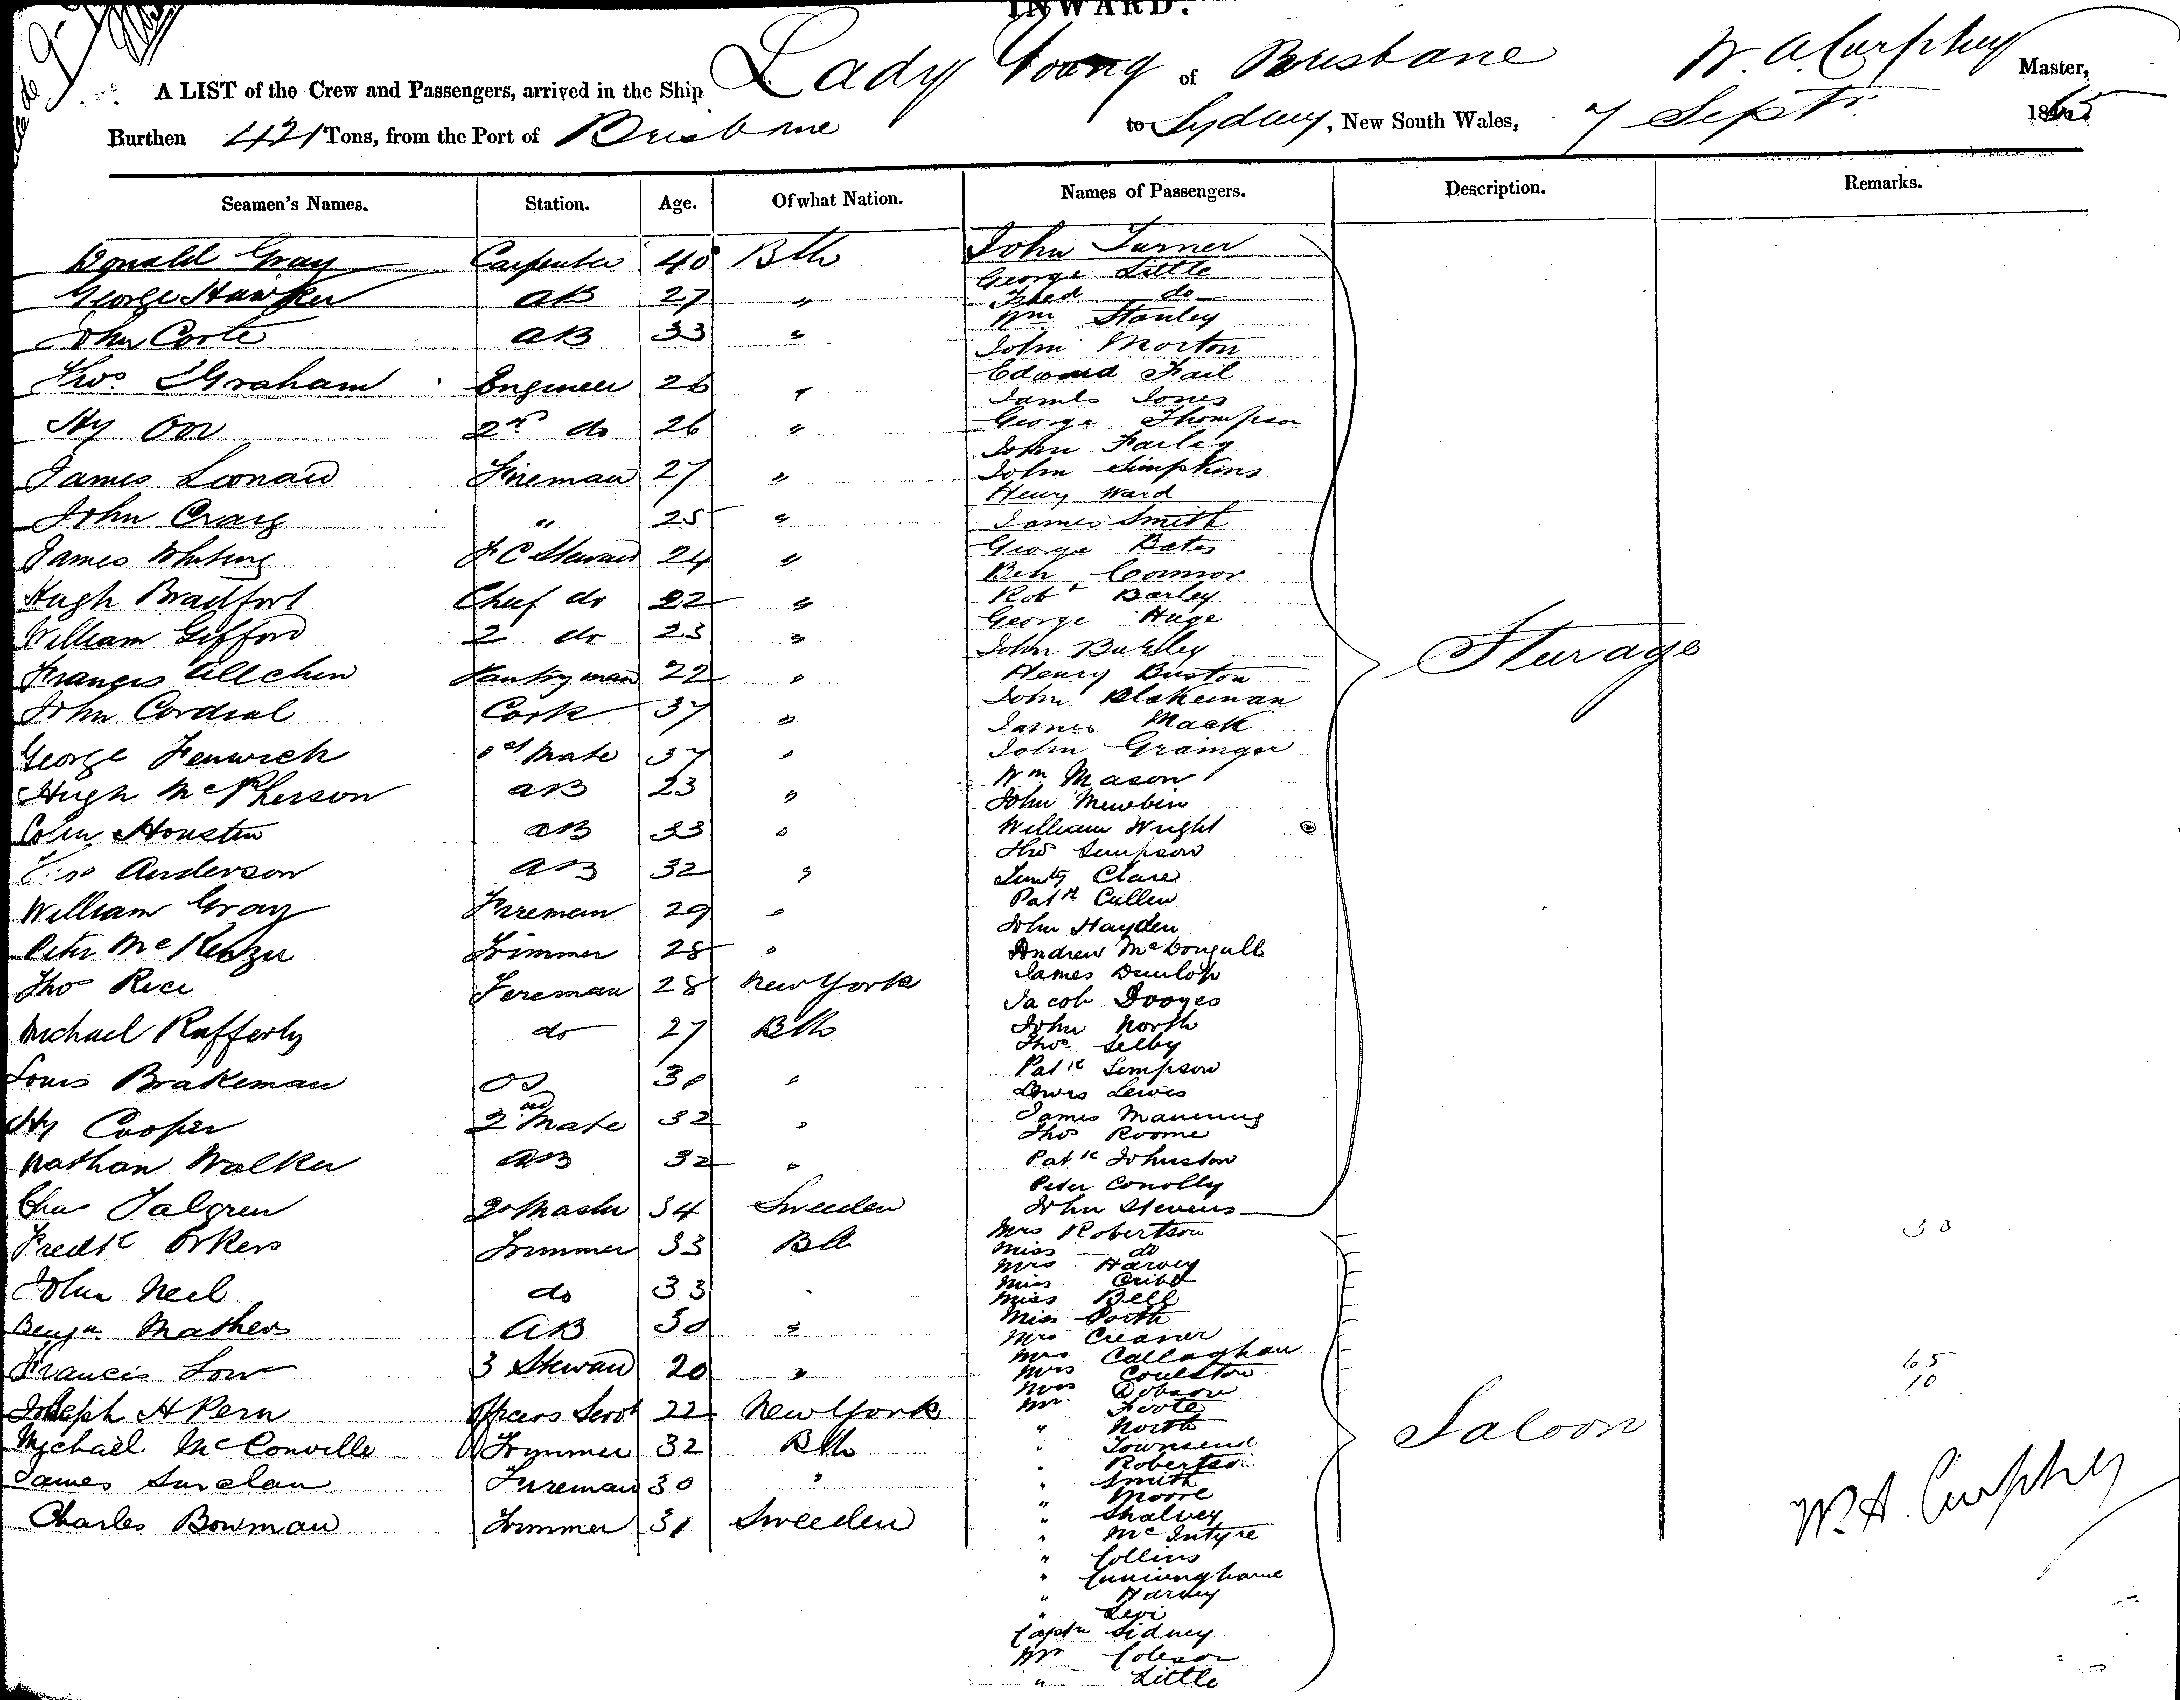 INWARD.
A LIST of the Crew and Passengers, arrived in the Ship Lady Young of Brisbane W. A. Curphey Master,
Burthen 421 Tons, from the Port of Brisbane to Sydney, New South Wales, 7 Septr. 1865
Seamen's Names. Station. Age. Of what Nation. Names of Passengers. Description. Remarks.
Donald Gray Carpenter 40 Bth
George Hawker AB 27 "
John Corte AB 33 "
Thos Graham Engineer 26 "
Hy Orr 2nd do 26 "
James Leonard Fireman 27 "
John Craig " 25 "
James Whiting F C Steward 24 "
Hugh Bradfort Chief do 22 "
William Gifford 2 do 23 "
Francis Allchin Pantryman 22 "
John Cordial Cook 37 "
George Fenwick Mate 37 "
Hugh McPherson AB 23 "
Colin Houston AB 33 "
Anderson AB 32 "
William Gray Fireman 29 "
Peter McKenzie Trimmer 28 "
Thos Rice Fireman 28 New York
Michael Rafferty do 27 Bth
Louis Brakeman OS 30 "
Hy Cooper 2nd Mate 32 "
Nathan Walker AB 32 "
Chas Talgren Qr Master 34 Sweeden
Fredk Orkers Trimmer 33 Bth
John Neil do 33
Benjn Mathers AB 30 "
Francis Low 3 Steward 20 "
Joseph A Kern Officers Servt 22 New York
Michael McConville Trimmer 32 Bth
James Sinclau Fireman 30 "
Charles Bowman Trimmer 31 Sweeden
John Turner
George Little
Fred do
Wm Stanley
John Morton
Edward Fail
James Jones
George Thompson
John Farley
John Simpkins
Henry Ward
James Smith
George Bates
Ben Connor
Robt Barley
George Huge
John Buckley
Henry Buston
John Blakeman
James Mack
John Grainger
Wm Mason
John Mewbin
William Wright
Thos Simpson
Timty Clare
Patk Cullen
John Hayden
Andrew McDougall
James Dunlop
Jacob Dooges
John North
Thos Selby
Patk Simpson
Lewis Lewis
James Manning
Thos Roome
Patk Johnston
Peter Conolly
John Stevens
Sturage
Mrs Robertson
Miss do
Mrs Harvey
Miss Cribb
Miss Bell
Miss Porth
Mrs Creaner
Mrs Callaghan
Mrs Coulston
Mrs Dobson
Mr Foote
" North
" Townsend
" Robertson
" Smith
" Moore
" Shalvey
" McIntyre
" Collins
" Cunninghame
" Harvey
" Levi
Captn Sidney
Mr Coleson
" Little
Saloon
30
65
10
W. A. Curphey